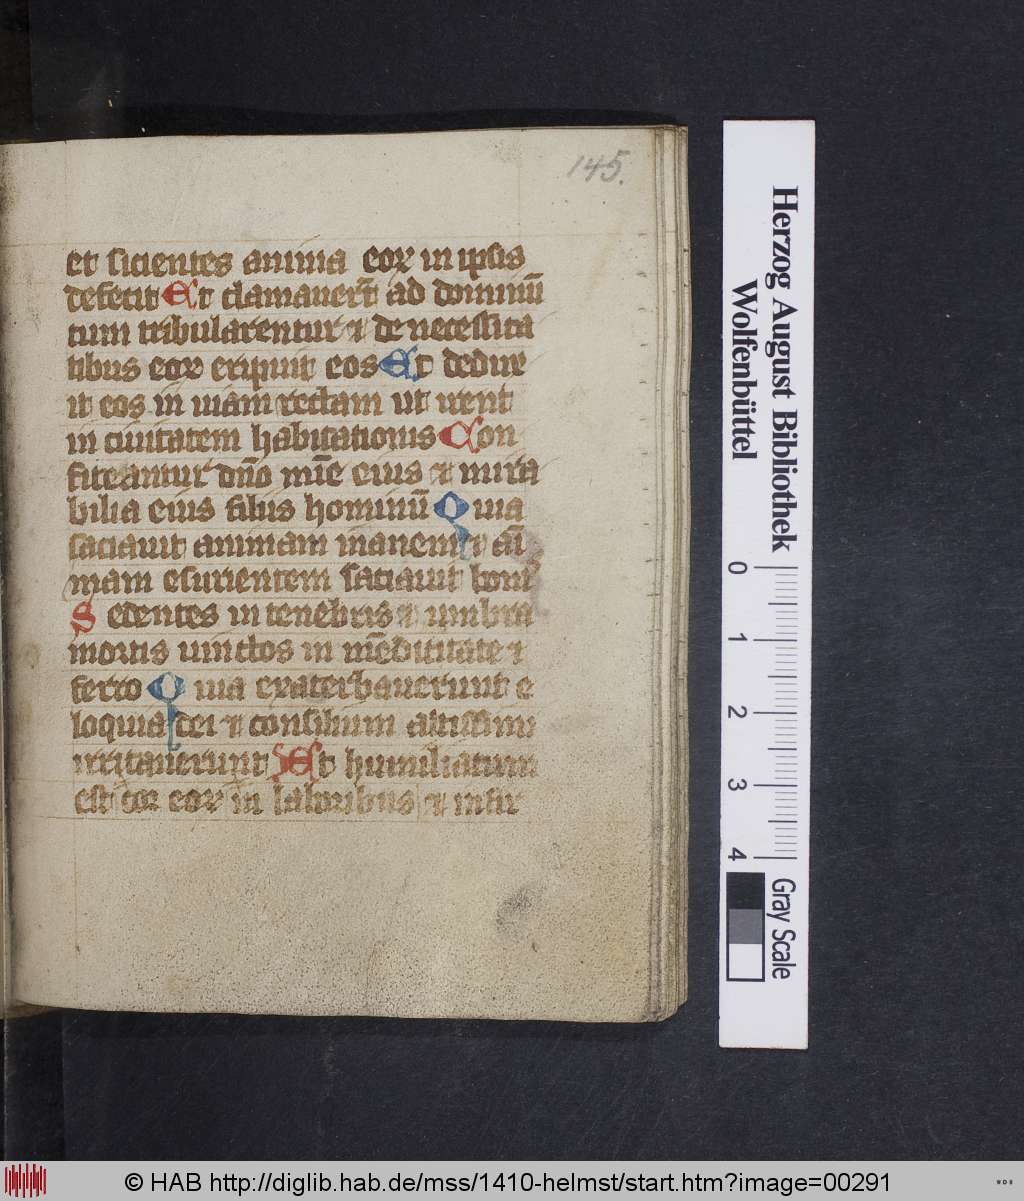 145.
et sicientes anima eoꝝ in ipsis
defecit Et clamauerūt ad dominū
cum tribularentur ⁊ de necessita
tibus eoꝝ eripuit eos Et dedux
it eos in uiam rectam ut irent
in ciuitatem habitationis Con
fiteantur dn̄o mīe eius ⁊ mira
bilia eius filiis hominū Quia
saciauit animam inanem ⁊ aī
mam esurientem saciauit bonis
Sedentes in tenebris ⁊ umbra
mortis uinctos in mēdicitate ⁊
ferro Quia exacerbauerunt e
loquia dei ⁊ consilium altissimi
irritauerunt Et humiliatum
est cor eoꝝ in laboribus ⁊ infir
Herzog August Bibliothek
Wolfenbüttel
0 1 2 3 4
Gray Scale
© HAB http://diglib.hab.de/mss/1410-helmst/start.htm?image=00291